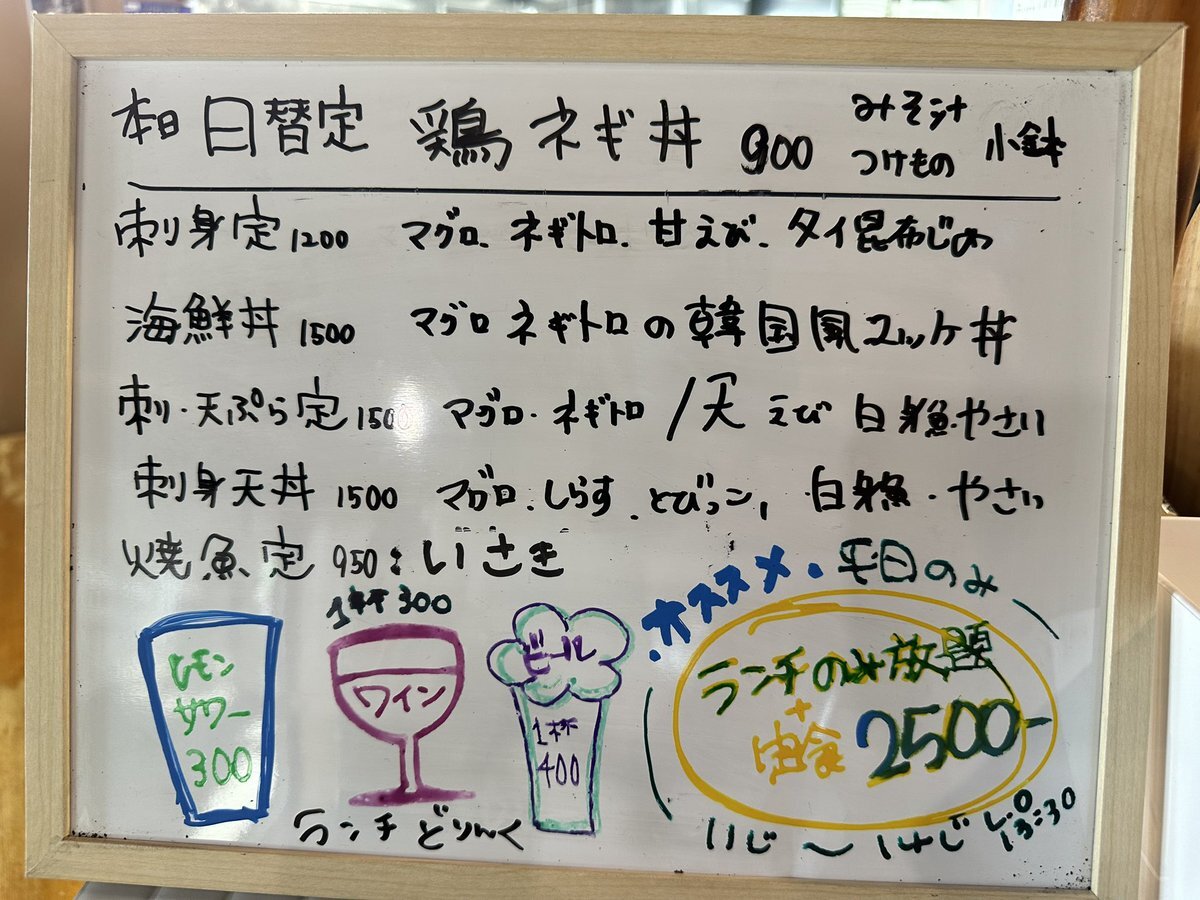 本日 日替定 鶏ネギ丼 900 みそ汁 つけもの 小鉢
刺身定 1200 マグロ、ネギトロ、甘えび、タイ昆布じめ
海鮮丼 1500 マグロ ネギトロの韓国風ユッケ丼
刺・天ぷら定 1500 マグロ・ネギトロ/天 えび 白身魚・やさい
刺身天丼 1500 マグロ、しらす、とびっこ、白身魚・やさい
焼魚定 950：いさき
レモン
サワー
300
1杯 300
ワイン
ビール
1杯
400
ランチ どりんく
・オススメ・平日のみ
ランチのみ放題
+
2500-
11じ〜14じ L.O 13:30